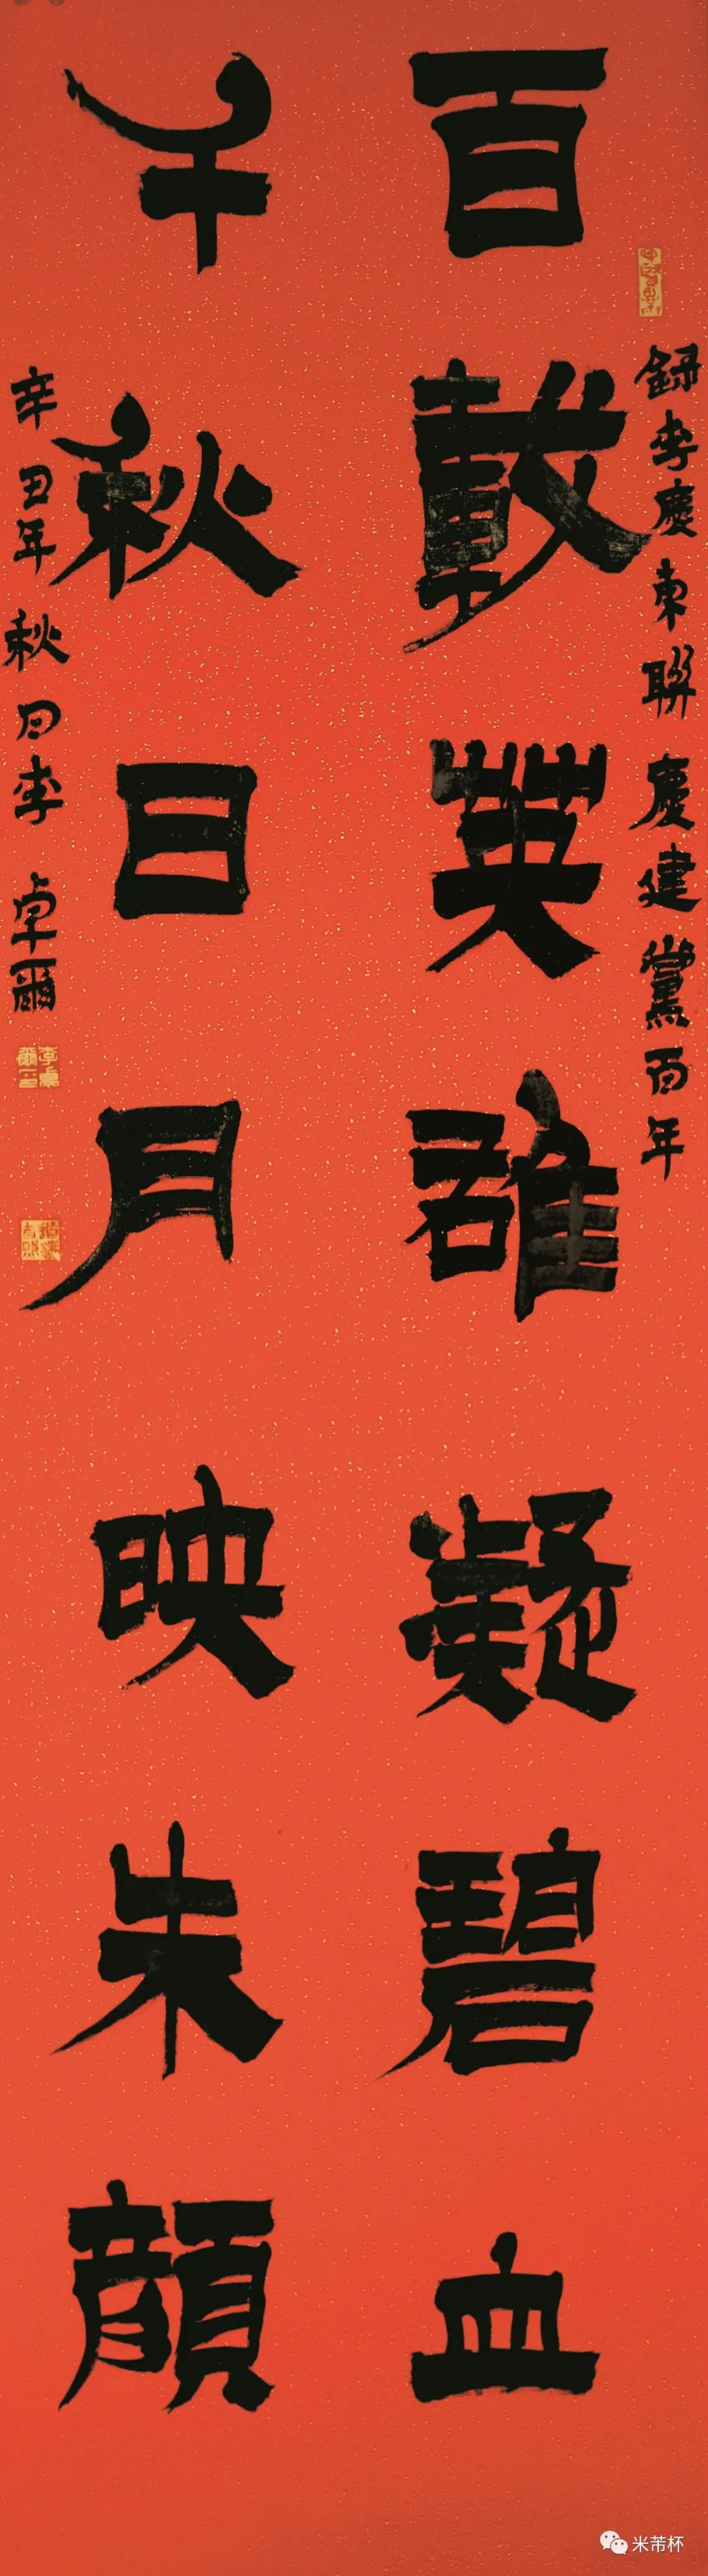 録李慶東聯慶建黨百年
百載英雄凝碧血
千秋日月映朱顔
辛丑年秋日李卓爾
李卓爾印
米芾杯